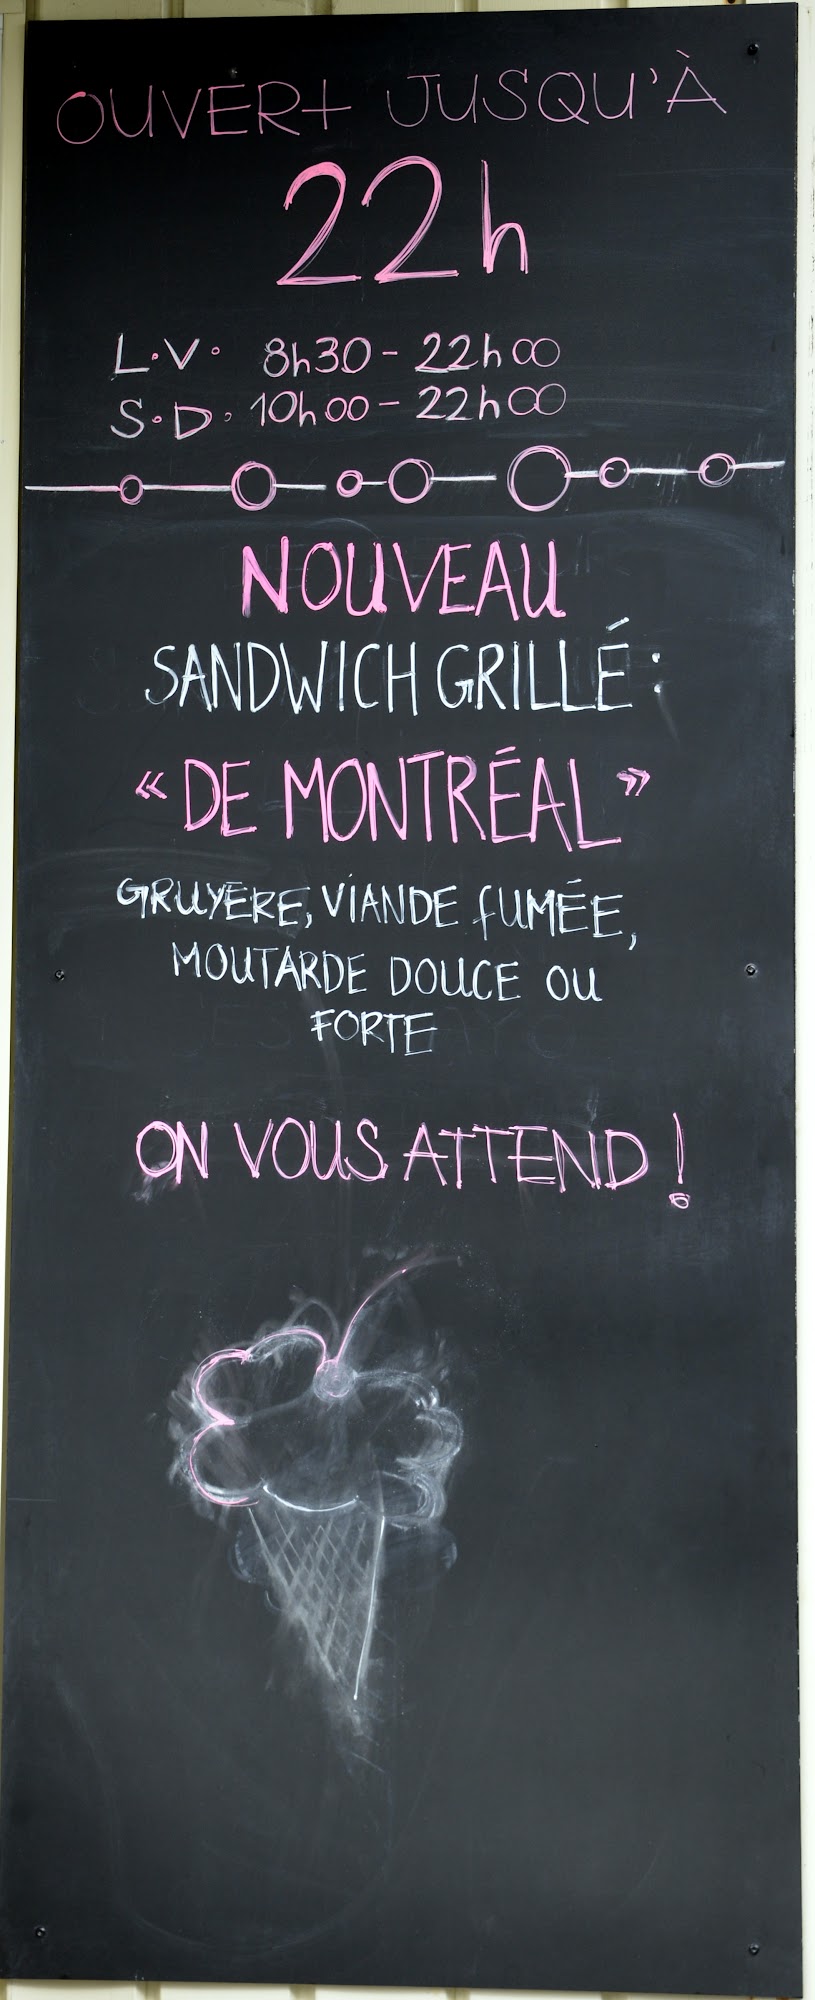 OUVERT JUSQU'À
22h
L.V. 8h30 - 22h00
S.D. 10h00 - 22h00
NOUVEAU
SANDWICH GRILLÉ :
« DE MONTRÉAL »
GRUYERE, VIANDE FUMÉE,
MOUTARDE DOUCE OU
FORTE
ON VOUS ATTEND !